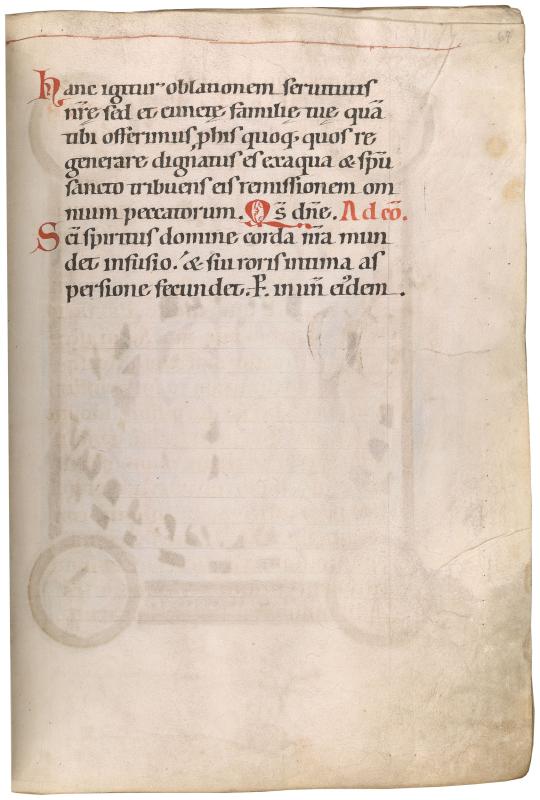 67
Hanc igitur oblationem seruitutis
nr̄e sed et cuncte familie tue quā
tibi offerimus p̱ his quoq; quos re
generare dignatus es exaqua & sp̄u
sancto tribuens eis remissionem om
nium peccatorum. Q̄s dn̄e. Ad cō.
Sc̄i spiritus domine corda nr̄a mun
det infusio. & sui roris intima as
persione fecundet. P. in un̄ eiꝰdem.